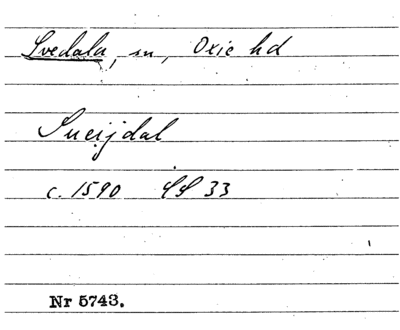 Svedala, sn, Oxie hd
Sueijdal
c. 1590 SS 33
Nr 5743.